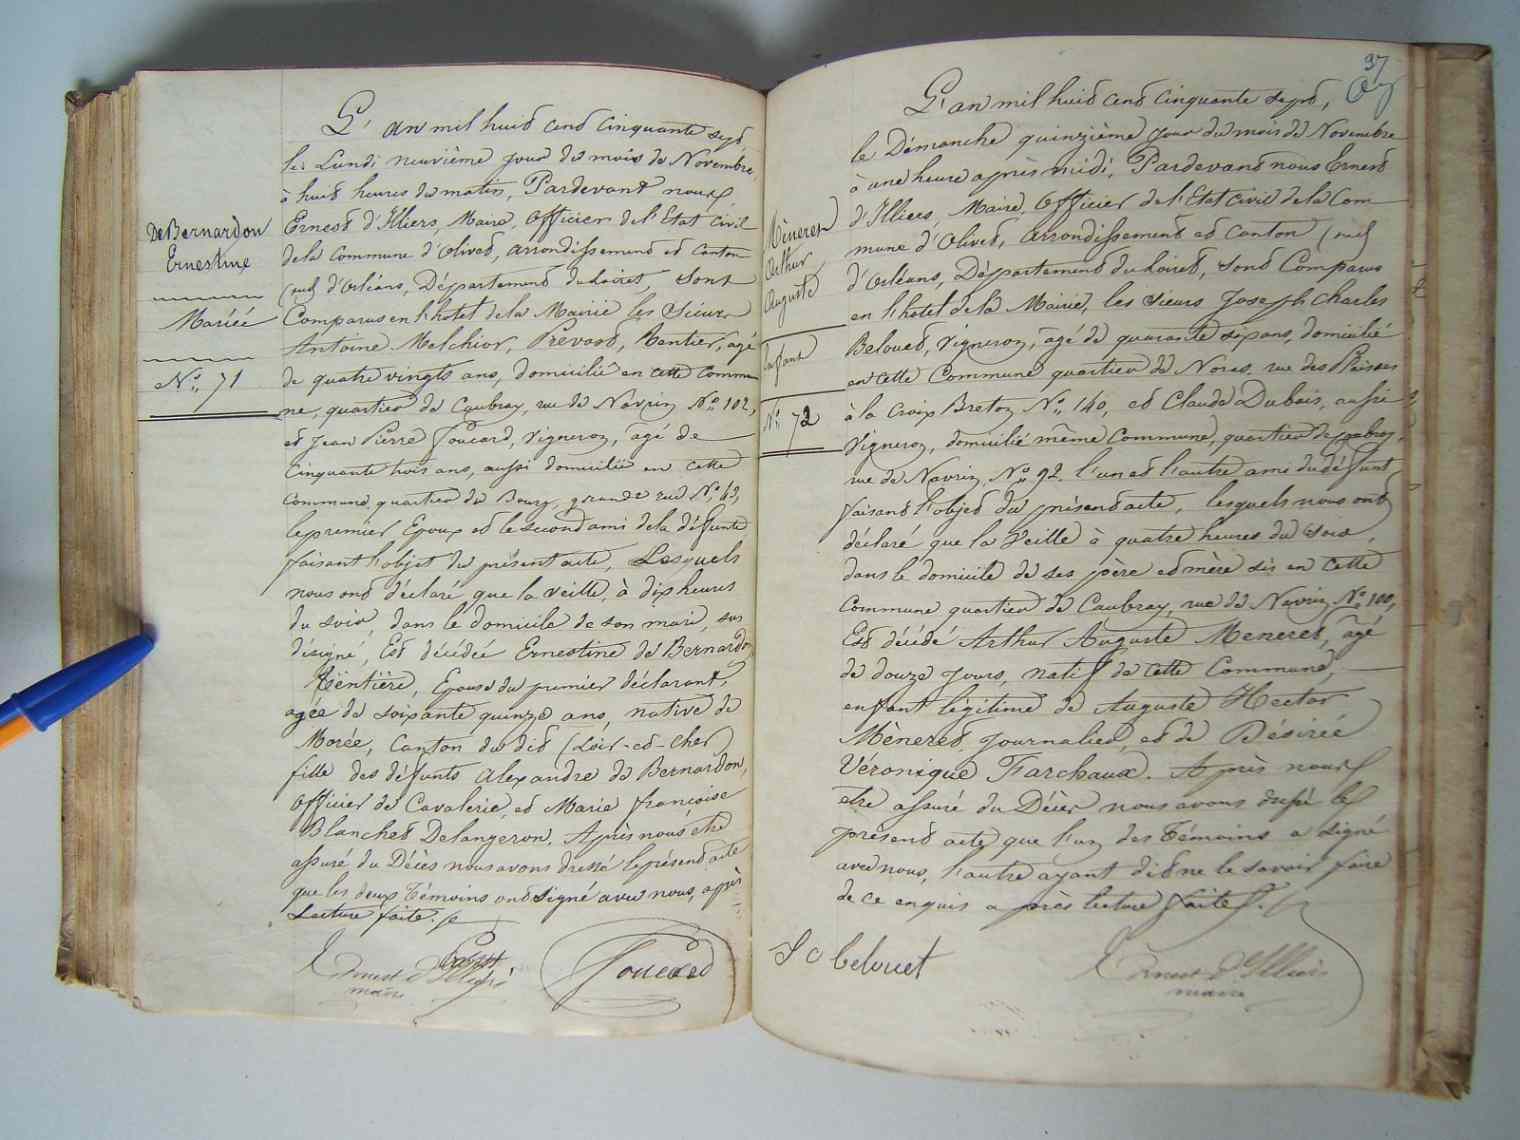 De Bernardon
Ernestine
Mariée
N° 71
L'an mil huit cent cinquante sept
le Lundi neuvième jour du mois de Novembre,
à huit heures du matin, Pardevant nous
Ernest d'Illiers, Maire, Officier de l'Etat Civil
de la Commune d'Olivet, arrondissement et Canton
(sud) d'Orléans, Département du Loiret, Sont
Comparus en l'hotel de la Mairie les Sieurs
Antoine Melchior, Prévost, Rentier, agé
de quatre vingts ans, domicilié en cette Commu
ne, quartier de Caubray, rue de Navrin N° 102,
et Jean Pierre Foucard, Vigneron, âgé de
Cinquante trois ans, aussi domicilié en cette
Commune quartier du Bourg, grande rue N° 43,
le premier Epoux et le second ami de la défunte
faisant l'objet du présent acte, Lesquels
nous ont déclaré que la veille, à dix heures
du soir, dans le domicile de son mari, sus
désigné, Est décédée Ernestine de Bernardon
Rentière, Epouse du premier déclarant,
agée de soixante quinze ans, native de
Morée, Canton du dit (Loir-et-Cher)
fille des défunts Alexandre de Bernardon,
Officier de Cavalerie, et Marie françoise
Blanchet Delangeron. Après nous être
assuré du Décès nous avons dressé le présent acte
que les deux Témoins ont signé avec nous, après
Lecture faite.
Ernest d'Illiers
maire
Foucard
37
Mèneret
Arthur
Auguste
Enfant
N° 72
L'an mil huit cent cinquante sept,
le Dimanche quinzième jour du mois de Novembre
à une heure après midi, Pardevant nous Ernest
d'Illiers, Maire, Officier de l'Etat Civil de la Com
mune d'Olivet, arrondissement et Canton (sud)
d'Orléans, Département du Loiret, sont Comparus
en l'hotel de la Mairie, les Sieurs Joseph Charles
Belouet, Vigneron, âgé de quarante six ans, domicilié
en cette Commune quartier de Noras, rue des
à la Croix Breton N° 140, et Claude Dubois, aussi
Vigneron, domicilié même Commune, quartier de Caubray,
rue de Navrin N° 92. l'un et l'autre ami du défunt
faisant l'objet du présent acte, lesquels nous ont
déclaré que la Veille à quatre heures du Soir,
dans le domicile de ses père et mère sis en cette
Commune quartier de Caubray, rue de Navrin N° 100,
Est décédé Arthur Auguste Meneret, âgé
de douze jours, natif de cette Commune,
enfant légitime de Auguste Hector
Mèneret, journalier, et de Désirée
Véronique Farchaux. Après nous
être assuré du Décès nous avons dressé le
présent acte que l'un des Témoins a signé
avec nous, l'autre ayant dit ne le savoir faire
de ce enquis après lecture faite.
J C belouet
Ernest d'Illiers
maire